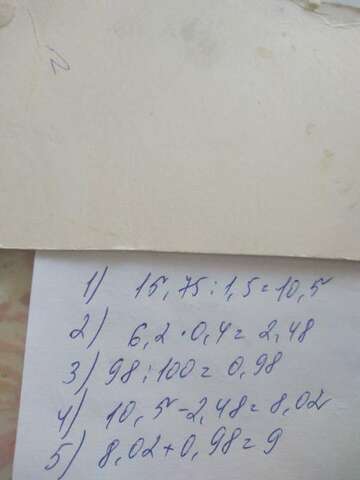 1) 15,75:1,5=10,5
2) 6,2·0,4=2,48
3) 98:100=0,98
4) 10,5-2,48=8,02
5) 8,02+0,98=9